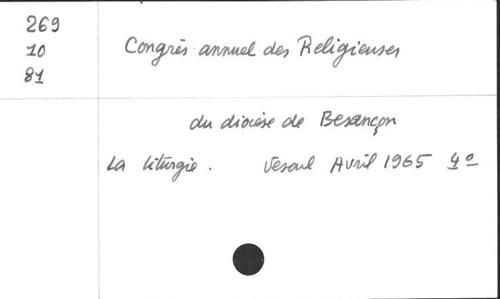 269
10
81
Congrès annuel des Religieuses
du diocèse de Besançon
La liturgie. Vesoul Avril 1965 4º